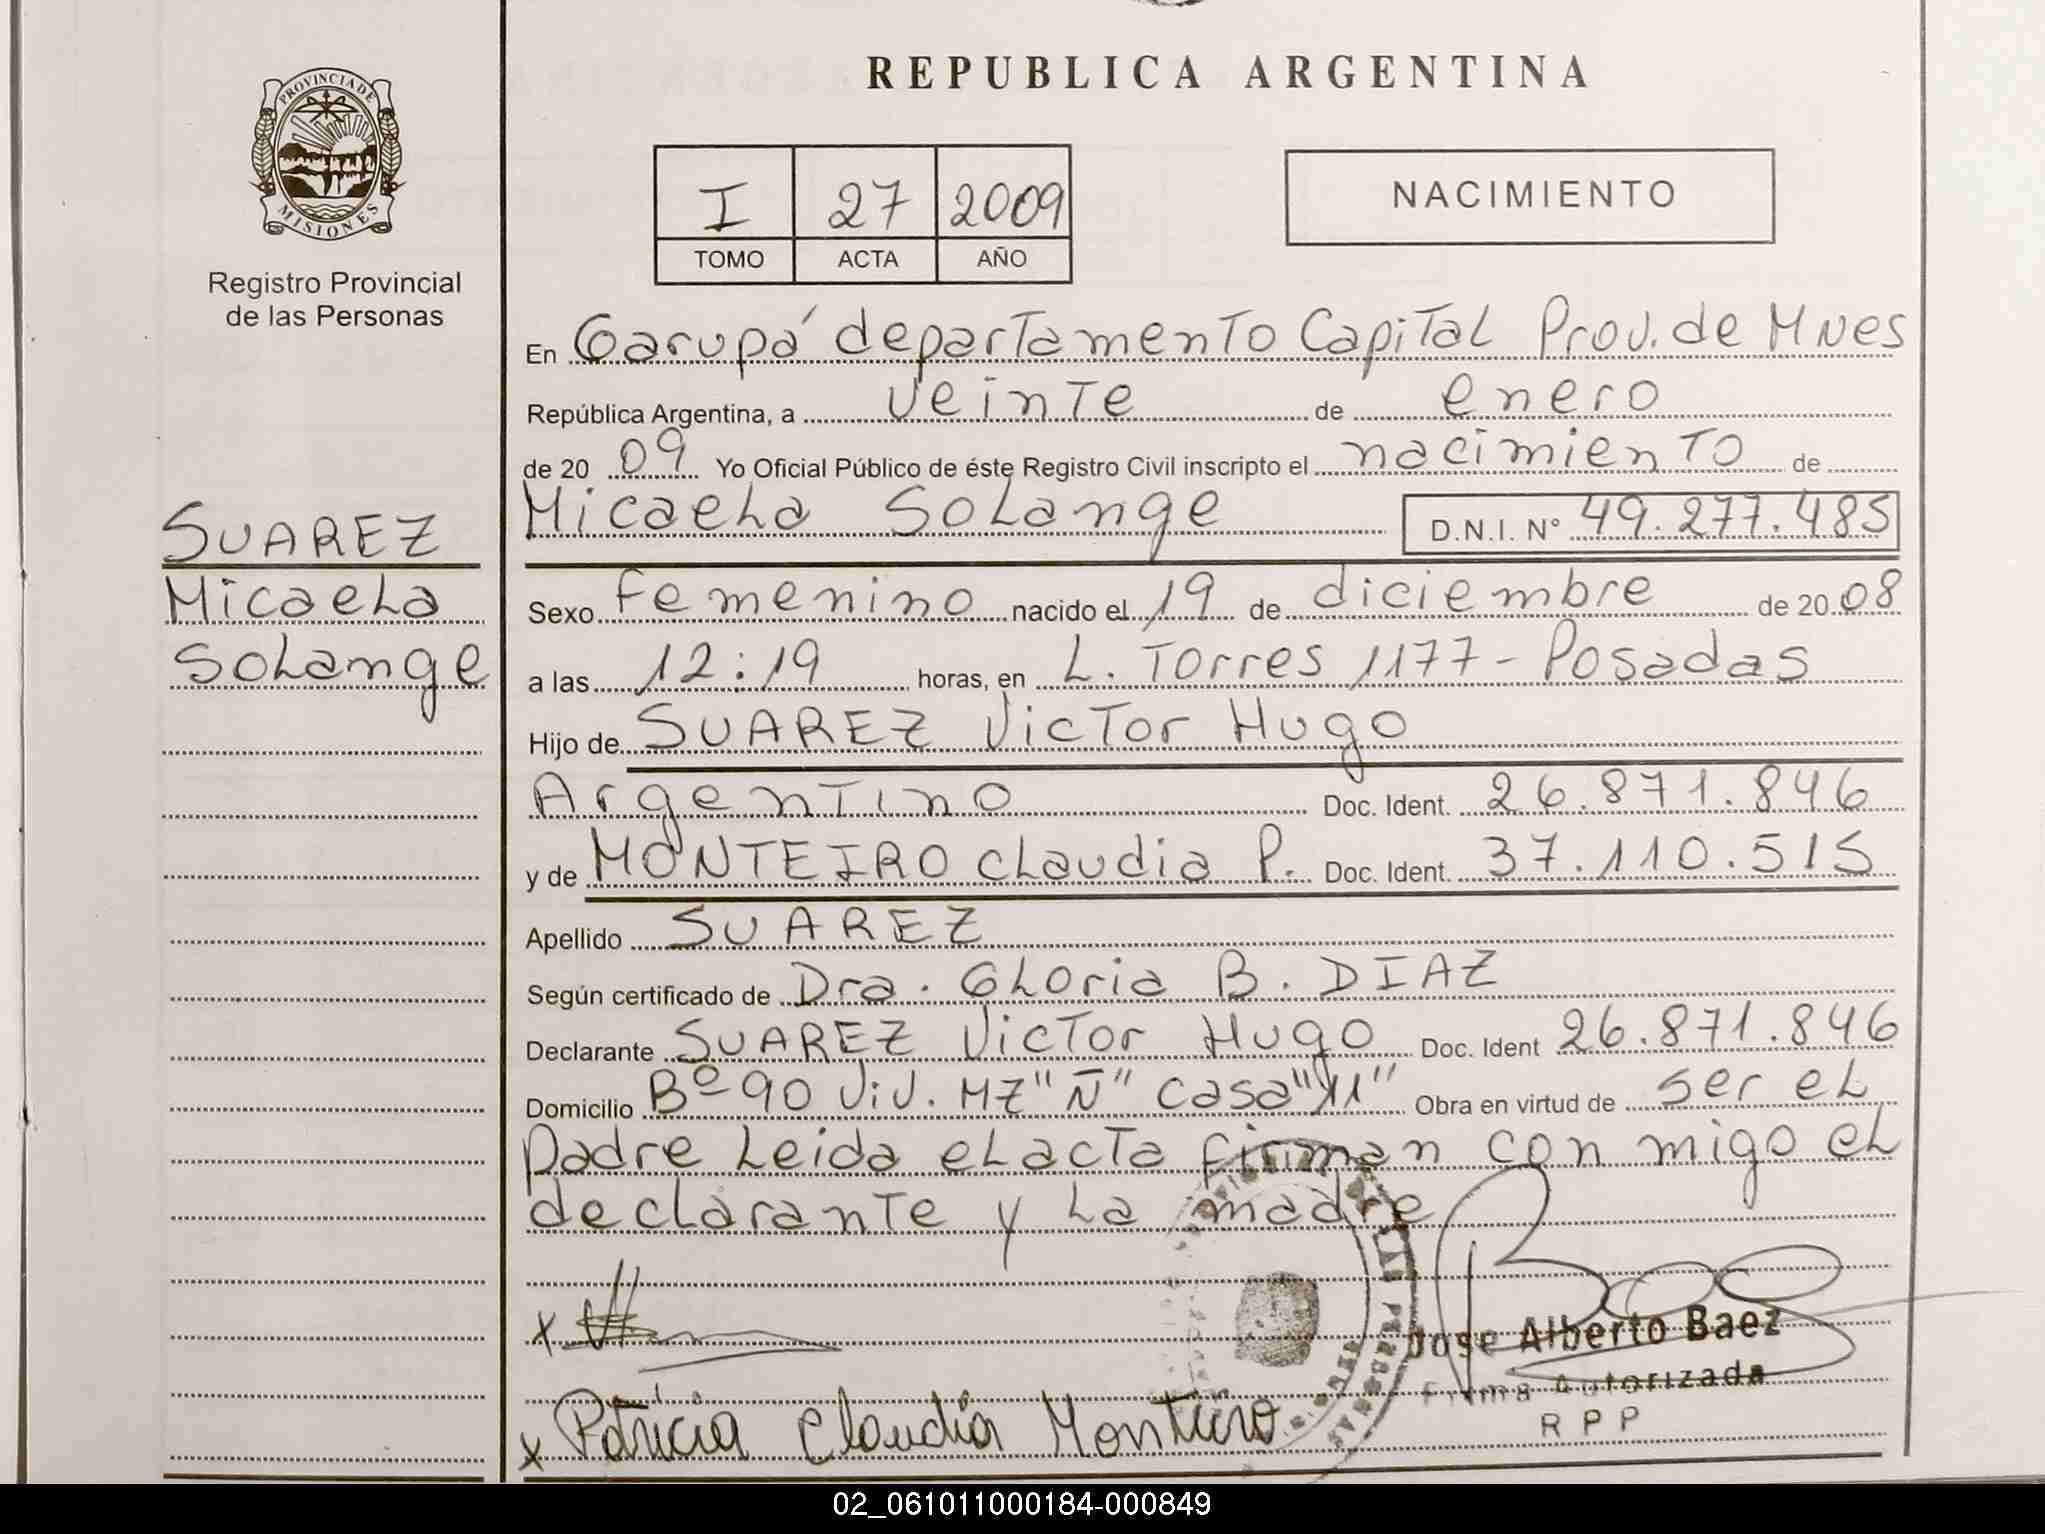 REPUBLICA ARGENTINA
PROVINCIA DE
MISIONES
Registro Provincial
de las Personas
I 27 2009
TOMO ACTA AÑO
NACIMIENTO
En Garupá departamento Capital Prov. de Mnes
República Argentina, a veinte de enero
de 20 09 Yo Oficial Público de éste Registro Civil inscripto el nacimiento de
Micaela Solange D.N.I. Nº 49.277.485
SUAREZ
Micaela
Solange
Sexo femenino nacido el 19 de diciembre de 20 08
a las 12:19 horas, en L. Torres 1177 - Posadas
Hijo de SUAREZ Victor Hugo
Argentino Doc. Ident. 26.871.846
y de MONTEIRO Claudia P. Doc. Ident. 37.110.515
Apellido SUAREZ
Según certificado de Dra. Gloria B. DIAZ
Declarante SUAREZ Victor Hugo Doc. Ident 26.871.846
Domicilio Bº 90 Viv. MZ "Ñ" casa "11" Obra en virtud de ser el
padre Leida el acta firman con migo el
declarante y la madre
x
x Patricia Claudia Monteiro
Jose Alberto Baez
Firma Autorizada
R P P
02_061011000184-000849